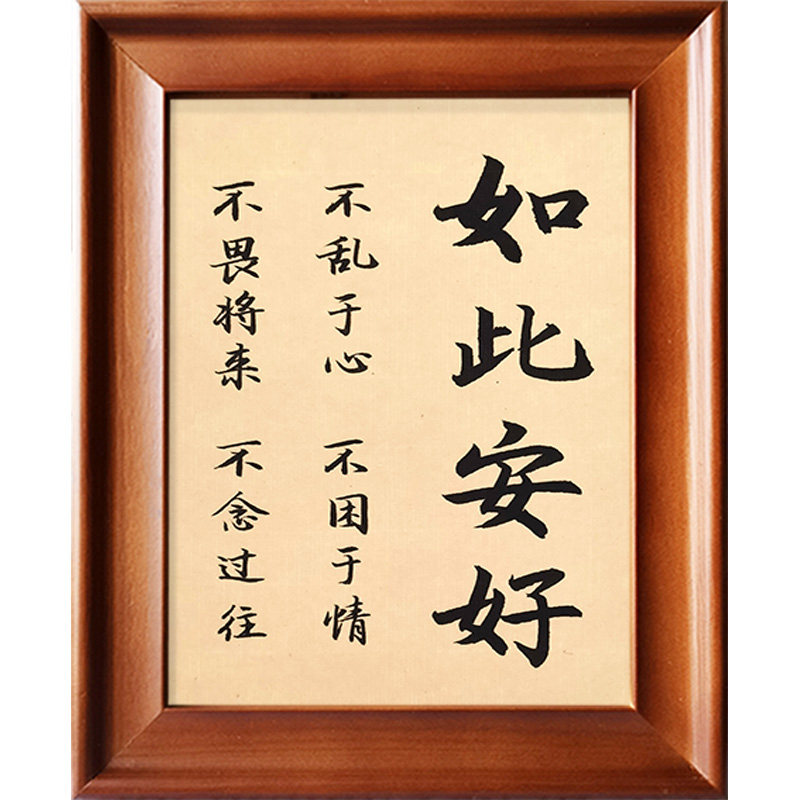 如此安好
不乱于心 不困于情
不畏将来 不念过往